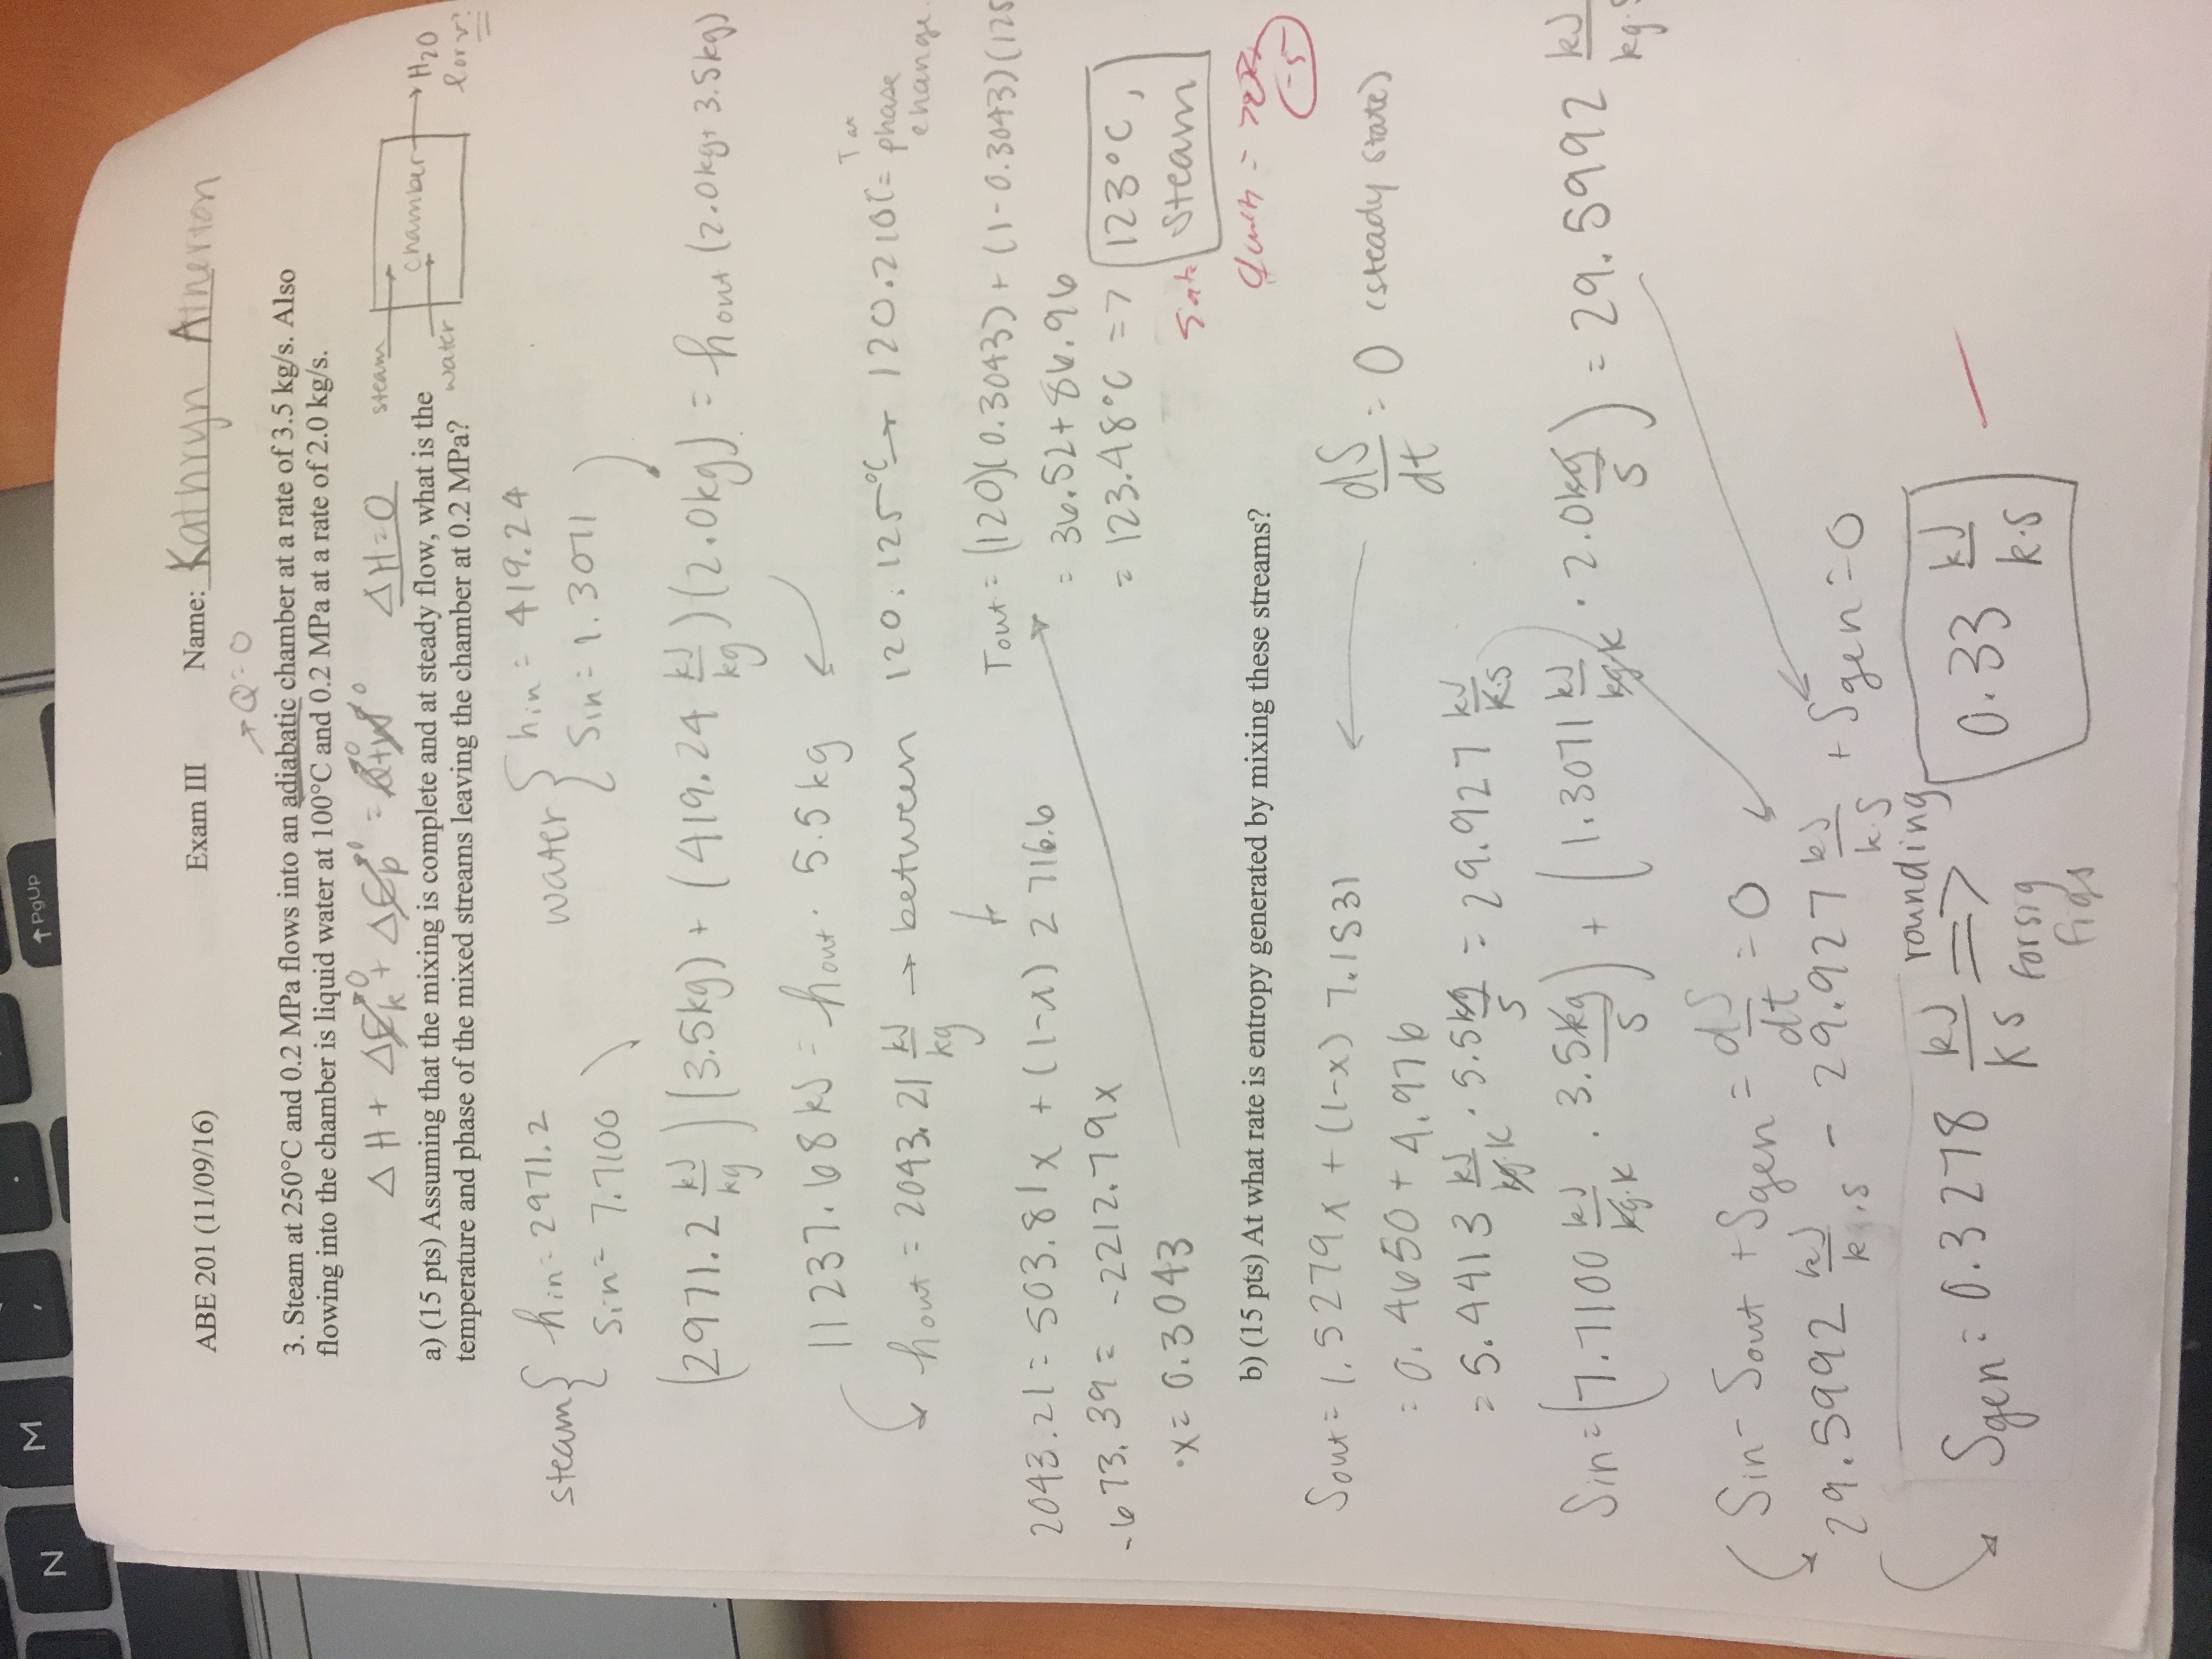 N M , . ↑PgUp
ABE 201 (11/09/16) Exam III Name: Kathryn Atherton
→ Q = 0
3. Steam at 250°C and 0.2 MPa flows into an adiabatic chamber at a rate of 3.5 kg/s. Also
flowing into the chamber is liquid water at 100°C and 0.2 MPa at a rate of 2.0 kg/s.
ΔH + ΔEk→0 + ΔEp→0 = Q→0 + W→0 ΔH = 0
steam chamber → H2O
water l or v?
a) (15 pts) Assuming that the mixing is complete and at steady flow, what is the
temperature and phase of the mixed streams leaving the chamber at 0.2 MPa?
steam { hin = 2971.2 water { hin = 419.24
Sin = 7.7100 Sin = 1.3071
(2971.2 kJ/kg)(3.5kg) + (419.24 kJ/kg)(2.0kg) = hout (2.0kg + 3.5kg)
11237.68 kJ = hout · 5.5 kg
hout = 2043.21 kJ/kg → between 120, 125°C → 120.210°C = T at phase change
Tout = (120)(0.3043) + (1-0.3043)(125
2043.21 = 503.81x + (1-x) 2716.6
= 36.52 + 86.96
-673.39 = -2212.79x
= 123.48°C => 123°C, steam
x = 0.3043
-5
b) (15 pts) At what rate is entropy generated by mixing these streams?
Sout = 1.5279x + (1-x) 7.1531 ← dS/dt = 0 (steady state)
= 0.4650 + 4.976
= 5.4413 kJ/kg·K · 5.5 kg/s = 29.927 kJ/K·s
Sin = (7.7100 kJ/kg·K · 3.5 kg/s) + (1.3071 kJ/kg·K · 2.0 kg/s) = 29.5992 kJ/kg·s
Sin - Sout + Sgen = dS/dt = 0
29.5992 kJ/k·s - 29.927 kJ/k·s + Sgen = 0
Sgen = 0.3278 kJ/K s => rounding for sig figs 0.33 kJ/k·s